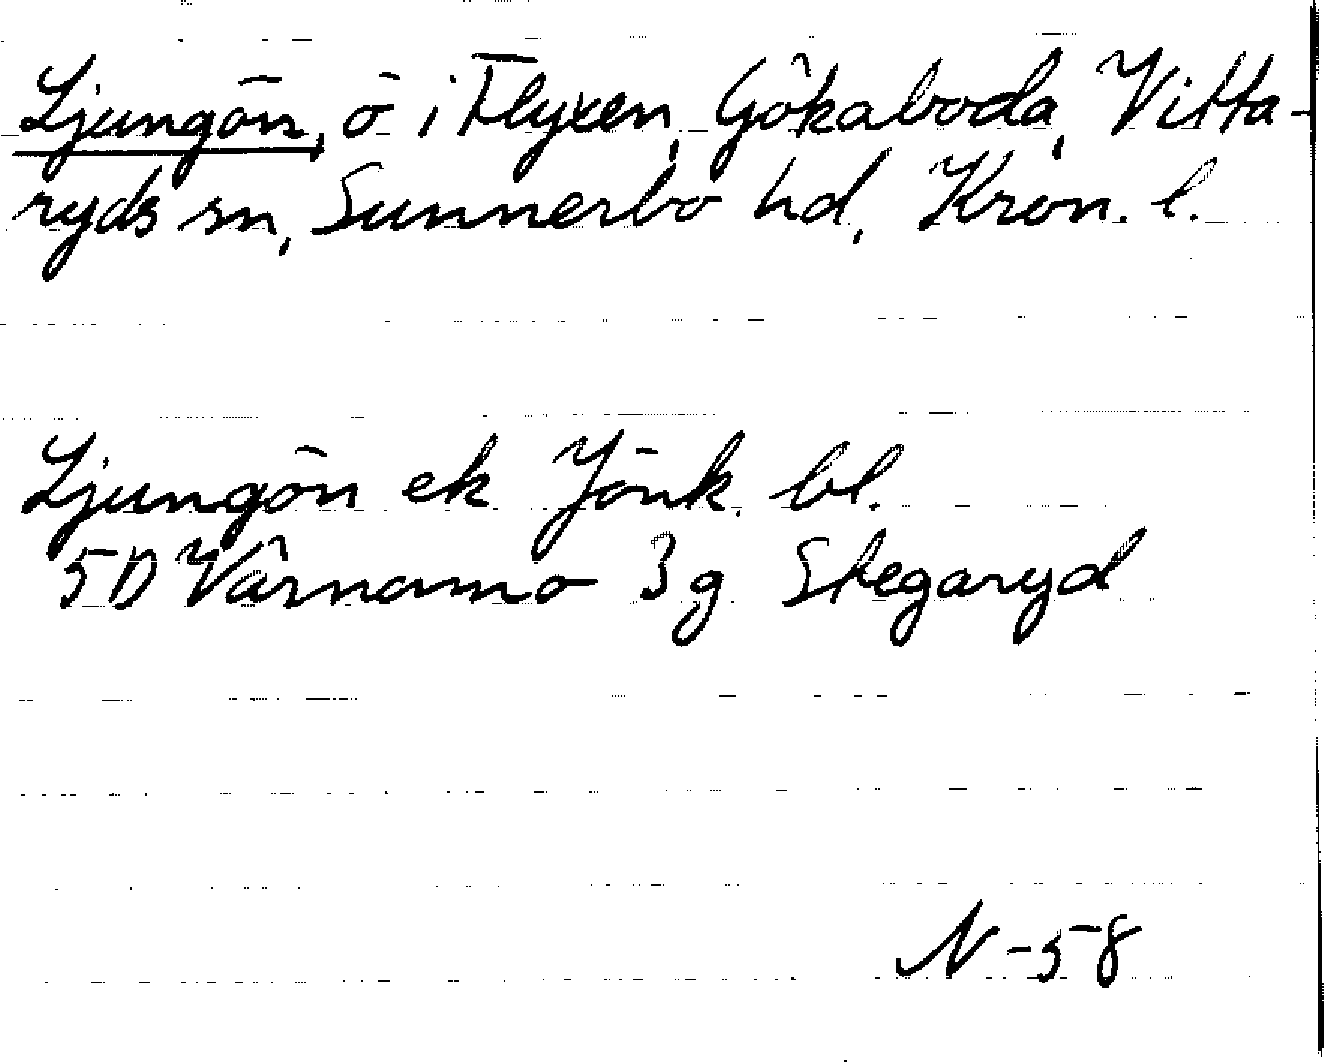 Ljungön, ö i Flyxen, Gökaboda, Vitta-
ryds sn, Sunnerbo hd, Kron. l.
Ljungön ek Jönk. bl.
5D Värnamo 3g Skegaryd
N-58